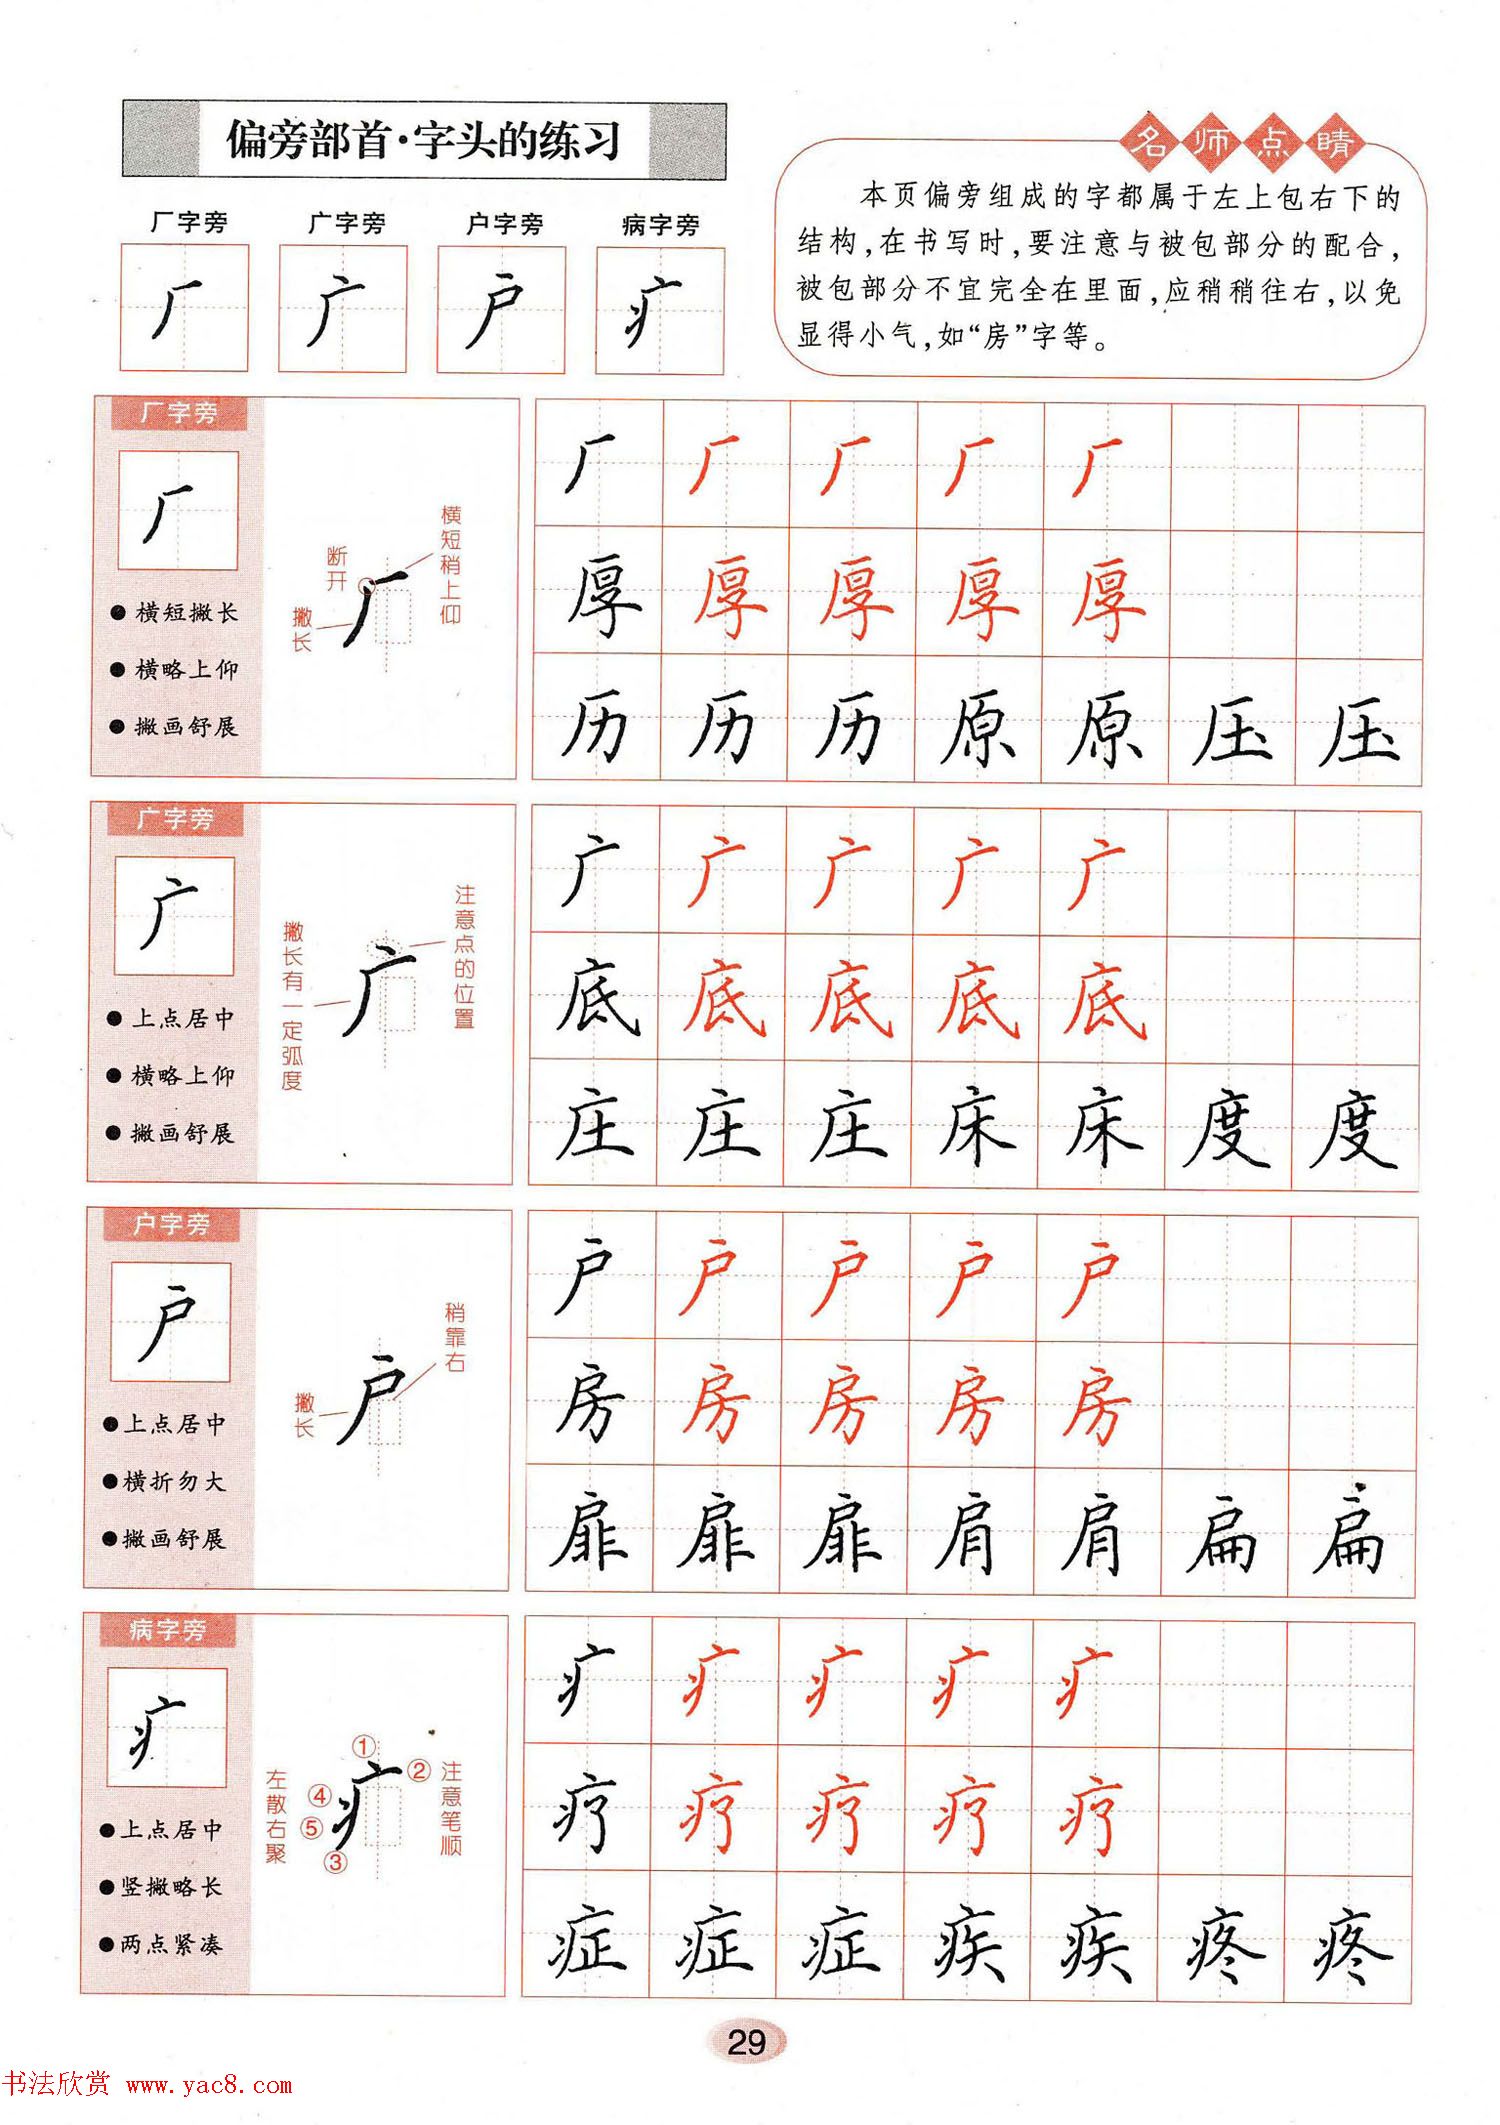 偏旁部首·字头的练习
厂字旁 广字旁 户字旁 病字旁
厂 广 户 疒
名师点睛
本页偏旁组成的字都属于左上包右下的
结构,在书写时,要注意与被包部分的配合,
被包部分不宜完全在里面,应稍稍往右,以免
显得小气,如“房”字等。
厂字旁
厂
●横短撇长
●横略上仰
●撇画舒展
断开
撇长
横短稍上仰
厂
厂 厂 厂 厂 厂
厚 厚 厚 厚 厚
历 历 历 原 原 压 压
广字旁
广
●上点居中
●横略上仰
●撇画舒展
撇长有一定弧度
注意点的位置
广
广 广 广 广 广
底 底 底 底 底
庄 庄 庄 床 床 度 度
户字旁
户
●上点居中
●横折勿大
●撇画舒展
撇长
稍靠右
户
户 户 户 户 户
房 房 房 房 房
扉 扉 扉 肩 肩 扁 扁
病字旁
疒
●上点居中
●竖撇略长
●两点紧凑
左散右聚
① ② ④ ⑤ ③
注意笔顺
疒
疒 疒 疒 疒 疒
疗 疗 疗 疗 疗
症 症 症 疾 疾 疼 疼
29
书法欣赏 www.yac8.com